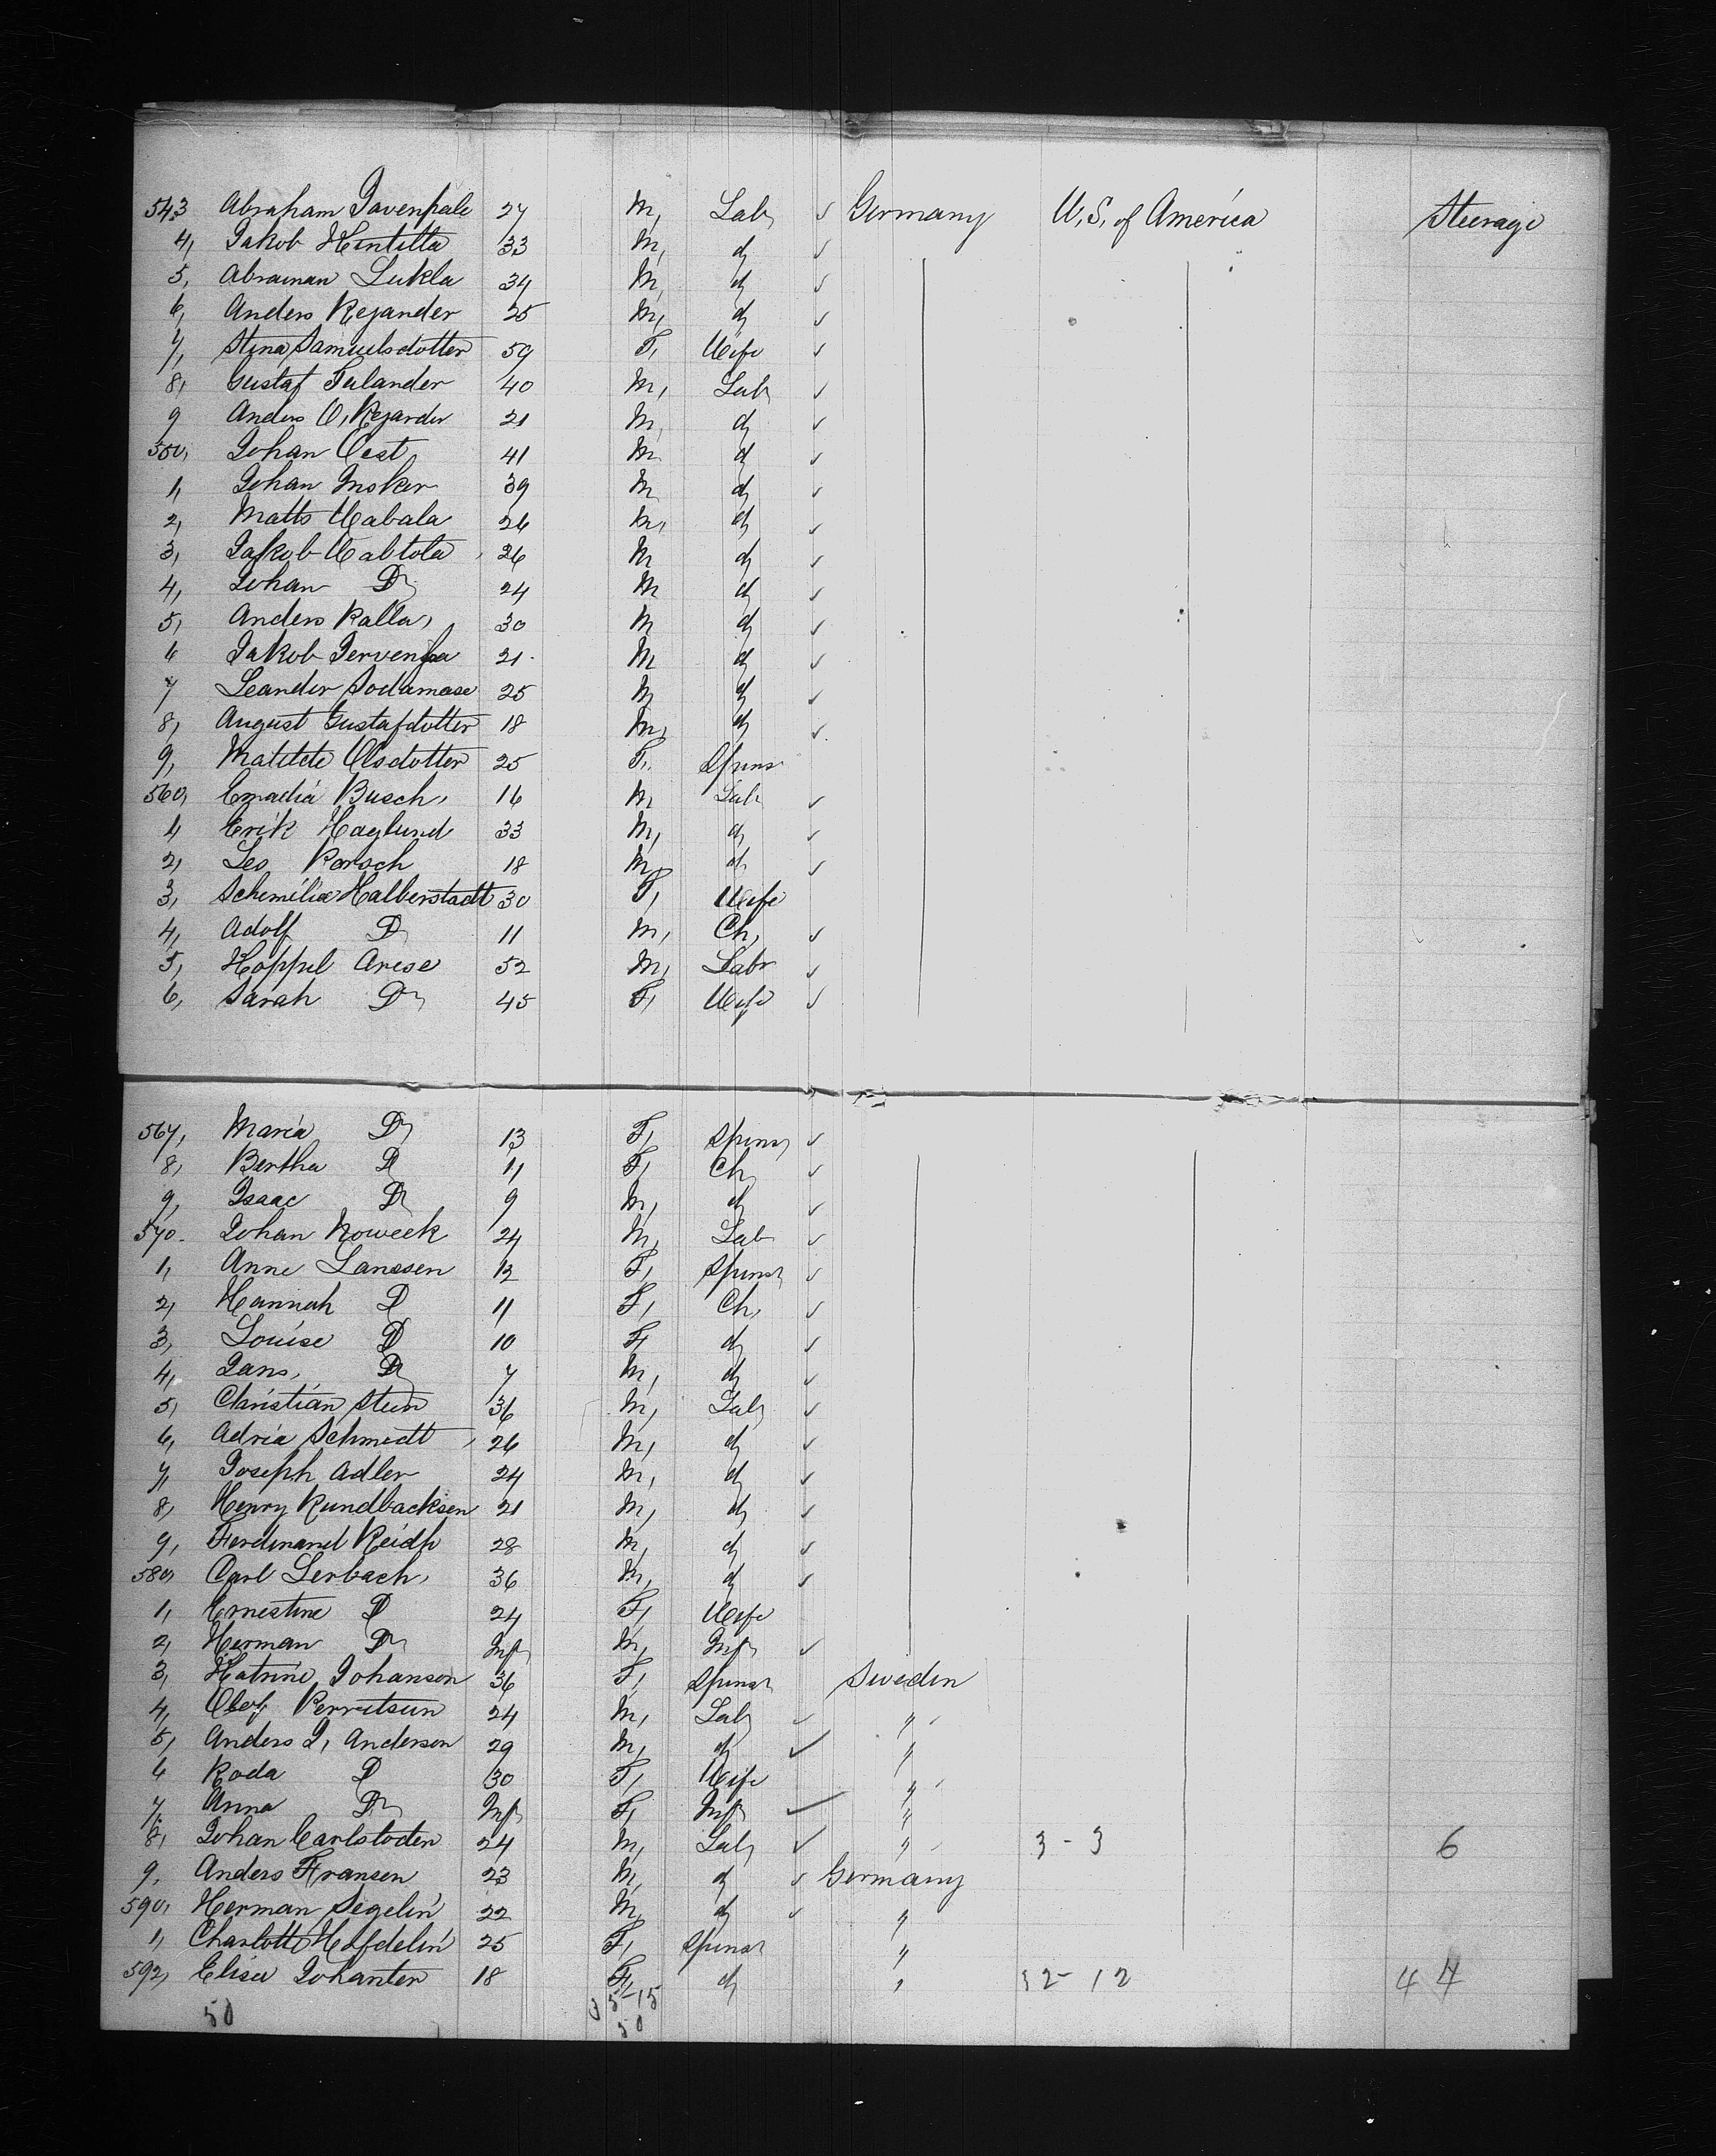 543 Abraham Davenpale 27 M, Lab, ✓ Germany U, S, of America Steerage
4, Jakob Hintilla 33 M, d ✓
5, Abraman Lukla 34 M, d ✓
6, Anders Regander 25 M, d ✓
7, Stina Samuelsdotter 59 F, Wife ✓
8, Gustaf Fulander 40 M, Lab ✓
9 Anders O, Regarder 21 M, d ✓
550, Johan Oest 41 M d ✓
1, Johan Insker 39 M d ✓
2, Matts Wabala 26 M, d ✓
3, Jakob Wabtola 26 M d ✓
4, Johan Do 24 M d ✓
5, Anders Kalla, 30 M d ✓
6 Jakob Jervenpa 21 M d ✓
7 Leander Sodamase 25 M d ✓
8, August Gustafdotter 18 M, d ✓
9, Matilde Olsdotter 25 F, Spins
560, Busch, 16 M Lab ✓
1 Erik Haglund 33 M, d ✓
2, Leo Korsch 18 M, d ✓
3, Schemilia Halberstadt 30 F, Wife
4, Adolf Do 11 M, Ch, ✓
5, Hoppel Arese 52 M, Labr ✓
6, Sarah Do 45 F, Wife ✓
567, Maria Do 13 F, Spins ✓
8, Bertha Do 11 F, Ch ✓
9, Isaac Do 9 M, d ✓
570 Johan Noweck 24 M, Lab ✓
1, Anne Lanssen 12 F, Spinst ✓
2, Hannah Do 11 F, Ch, ✓
3, Louise Do 10 F d ✓
4, Jans, Do 7 M, d ✓
5, Christian Stein 36 M, Lab ✓
6, Adria Schmidt 26 M, d ✓
7, Joseph Adler 24 M, d ✓
8, Henry Rundbacksen 21 M, d ✓
9, Ferdinand Reidp 28 M, d ✓
580, Carl Lerbach, 36 M, d ✓
1, Ernestine Do 24 F, Wife
2, Herman Do Inf M, Inf ✓
3, Hatrine Johanson 36 F, Spinst Sweden
4, Olof Perritsun 24 M, Lab ✓ "
5, Anders J, Anderson 29 M, d ✓ "
6 Roda Do 30 F, Wife "
7, Anna Do Inf F, Inf ✓ "
8, Johan Carlstoden 24 M, Lab ✓ " 3 - 3 6
9, Anders Fransen 23 M, d ✓ Germany
590, Herman Segelin 22 M, d ✓ "
1, Charlotte Hofdelin 25 F, Spinst "
592, Elisa Johanter 18 F, d " 32 - 12 44
50 5-15
50